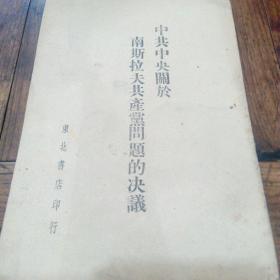 中共中央關於
南斯拉夫共產黨問題的决議
東北書店印行